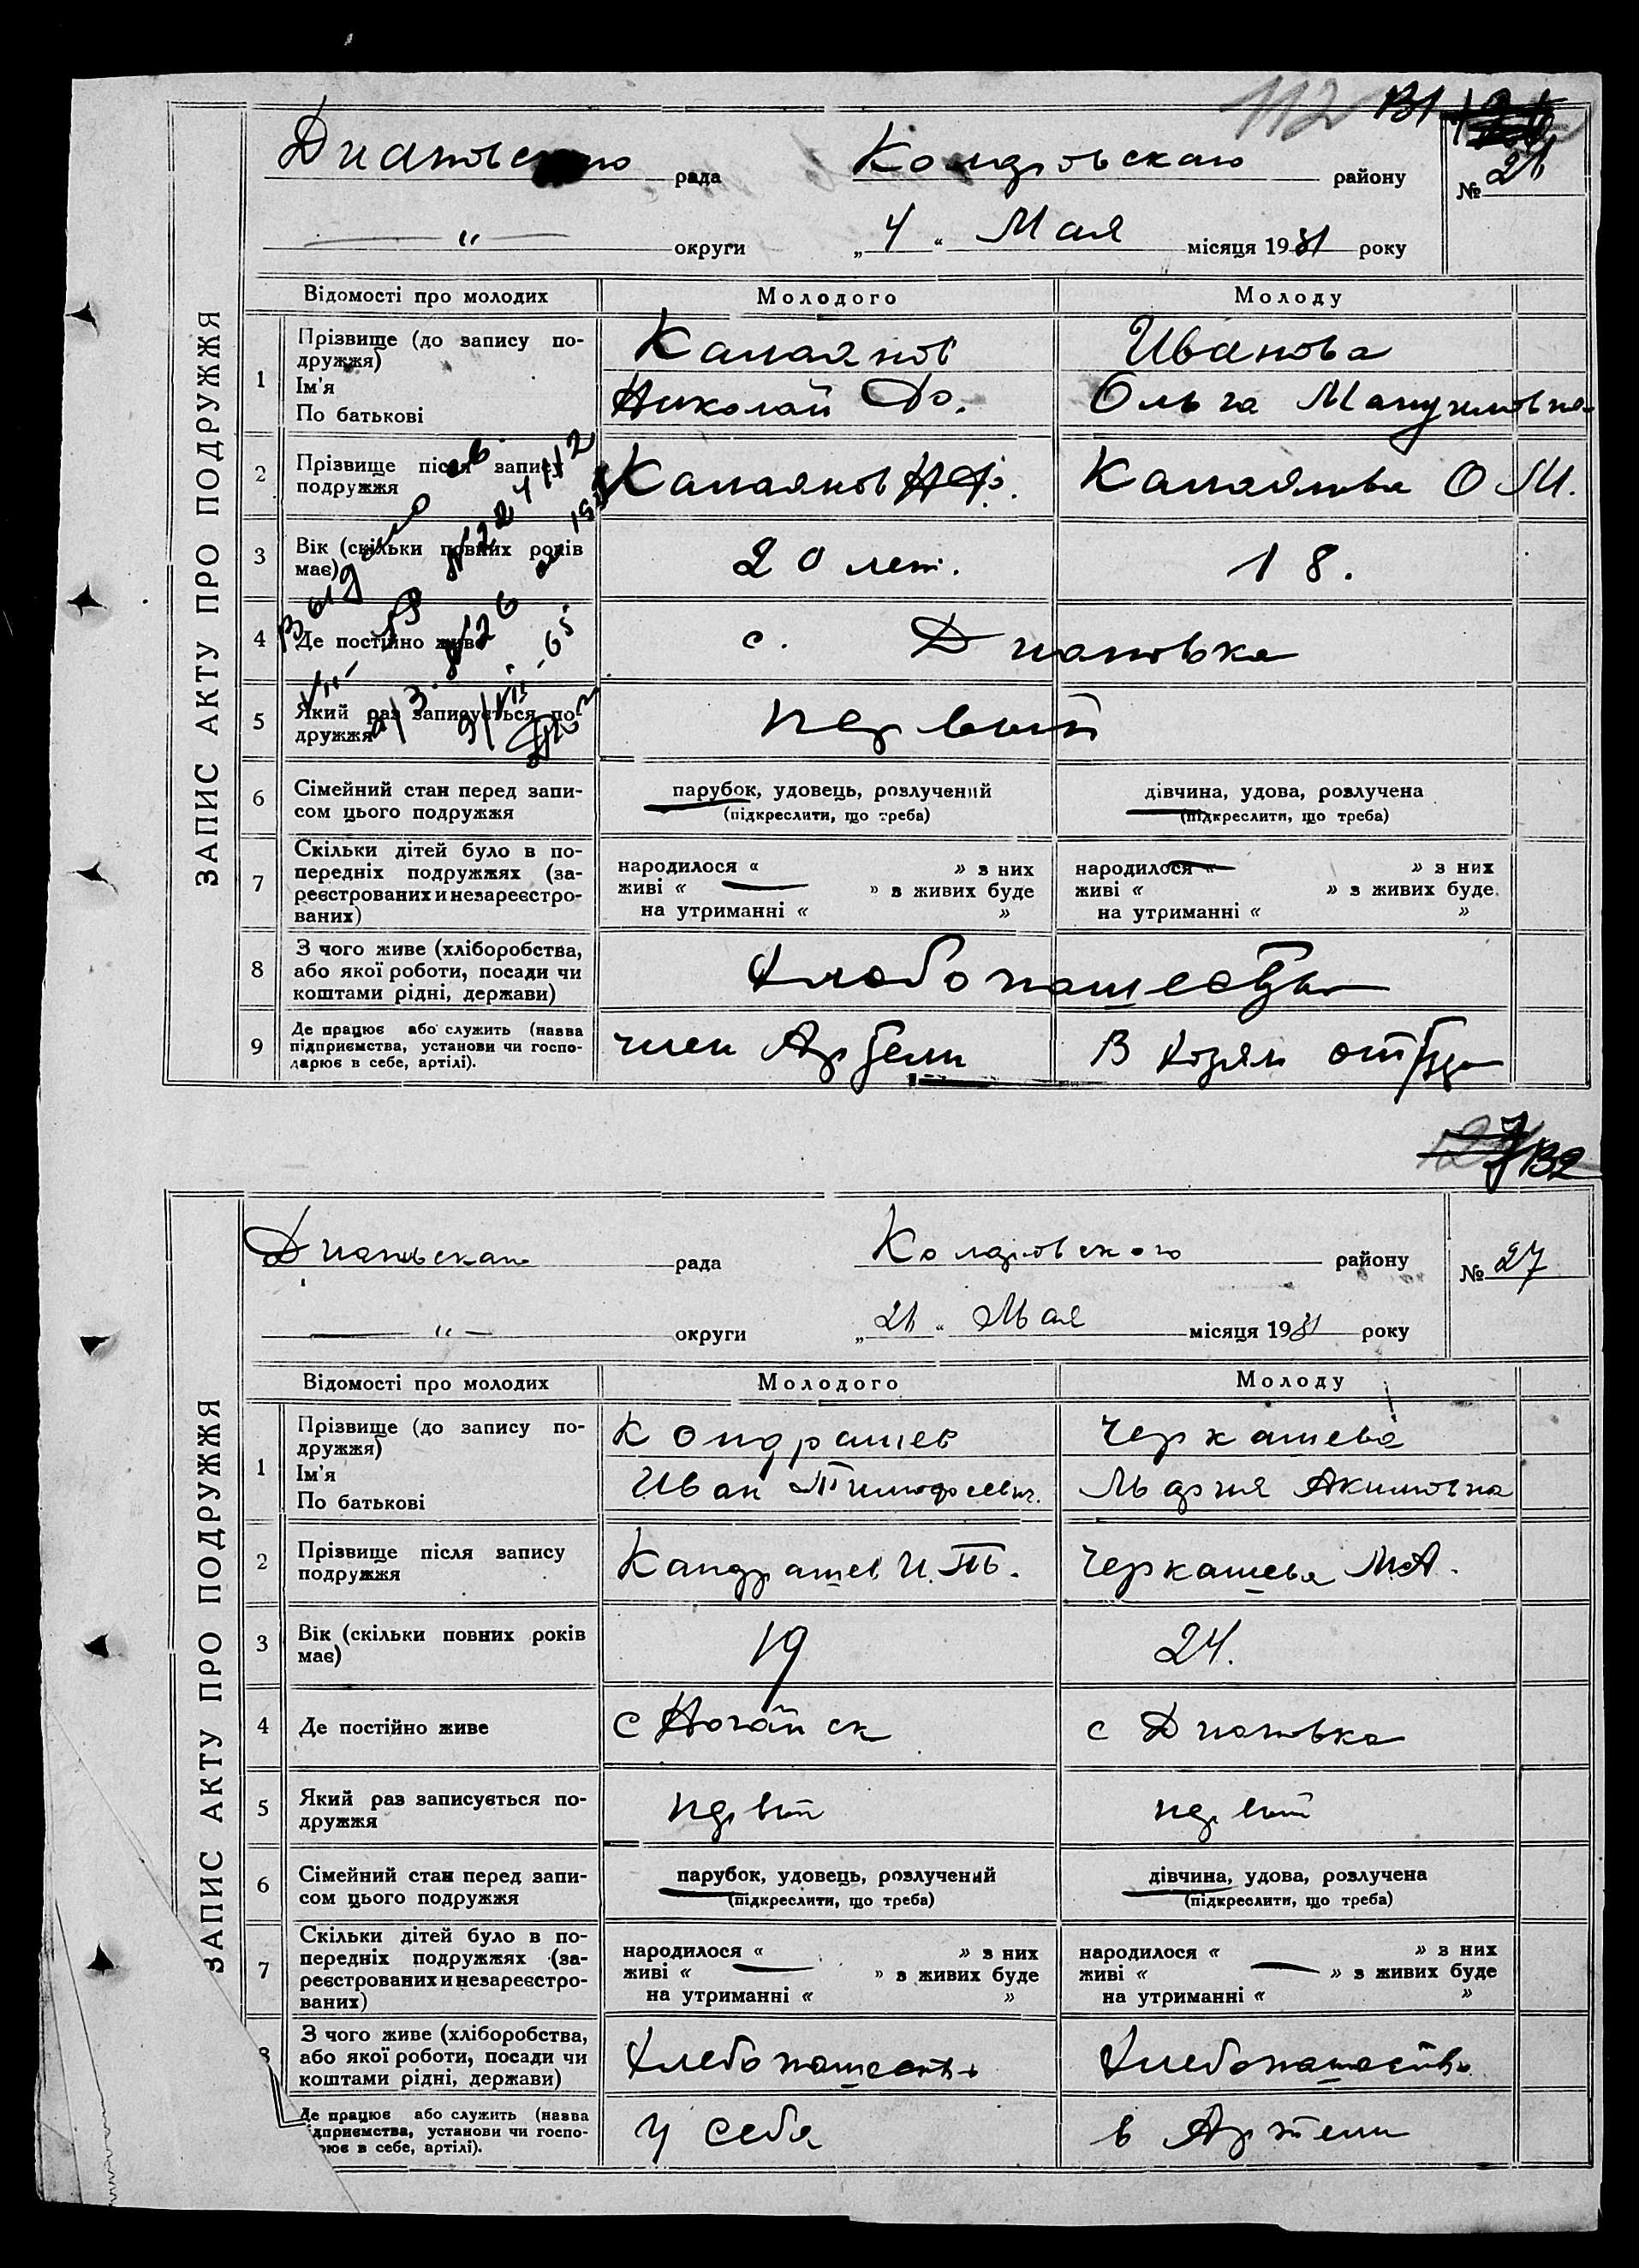 112 131
Диановского рада Комдровскаго району № 26
— " — округи „ 4 “ Мая місяця 1931 року
ЗАПИС АКТУ ПРО ПОДРУЖЖЯ
Відомості про молодих Молодого Молоду
1 Прізвище (до запису по-
дружжя)
Ім'я
По батькові
Иванова
Николай Ф. Ольга
2 Прізвище після запису
подружжя
О М.
3 Вік (скільки повних років
має)
20 лет. 18.
4 Де постійно живе
с. Диановка
5 Який раз записується по-
дружжя
первый
6 Сімейний стан перед запи-
сом цього подружжя
парубок, удовець, розлучений
(підкреслити, що треба)
дівчина, удова, розлучена
(підкреслити, що треба)
7 Скільки дітей було в по-
передніх подружжях (за-
реєстрованих и незареєстро-
ваних)
народилося « » з них
живі « — » з живих буде
на утриманні « »
народилося « — » з них
живі « » з живих буде
на утриманні « »
8 З чого живе (хліборобства,
або якої роботи, посади чи
коштами рідні, держави)
Хлебопашество
9 Де працює або служить (назва
підприємства, установи чи госпо-
дарює в себе, артілі).
член Артели В отца
132
Диановскаго рада району № 27
— " — округи „ 21 “ Мая місяця 1931 року
ЗАПИС АКТУ ПРО ПОДРУЖЖЯ
Відомості про молодих Молодого Молоду
1 Прізвище (до запису по-
дружжя)
Ім'я
По батькові
Кондрашев Черкашева
Иван Тимофеевич. Мария Акимовна
2 Прізвище після запису
подружжя
Кандрашев И. Т. Черкашева М.А.
3 Вік (скільки повних років
має)
19 24.
4 Де постійно живе
с Ногайск с Диановка
5 Який раз записується по-
дружжя
первый первый
6 Сімейний стан перед запи-
сом цього подружжя
парубок, удовець, розлучений
(підкреслити, що треба)
дівчина, удова, розлучена
(підкреслити, що треба)
7 Скільки дітей було в по-
передніх подружжях (за-
реєстрованих и незареєстро-
ваних)
народилося « » з них
живі « — » з живих буде
на утриманні « »
народилося « » з них
живі « — » з живих буде
на утриманні « »
8 З чого живе (хліборобства,
або якої роботи, посади чи
коштами рідні, держави)
Хлебопашество Хлебопашество
Де працює або служить (назва
ідприємства, установи чи госпо-
рює в себе, артілі).
У себя в Артели